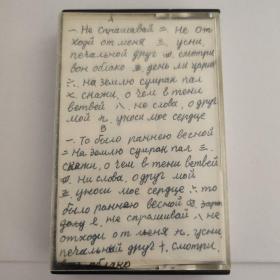 – Не спрашивай = не от
ходи от меня ≡ усни,
печальной друг смотри
вон облако день ли царит
на землю сумрак пал
скажи, о чем в тени
ветвей ни слова, о друг
мой уноси мое сердце
В
– То было раннею весной
= На землю сумрак пал ≡
скажи, о чем в тени ветвей
Ни слова, о друг мой
уноси мое сердце то
было раннею весной
Не спрашивай не
отходи от меня усни,
печальный друг смотри,
облако